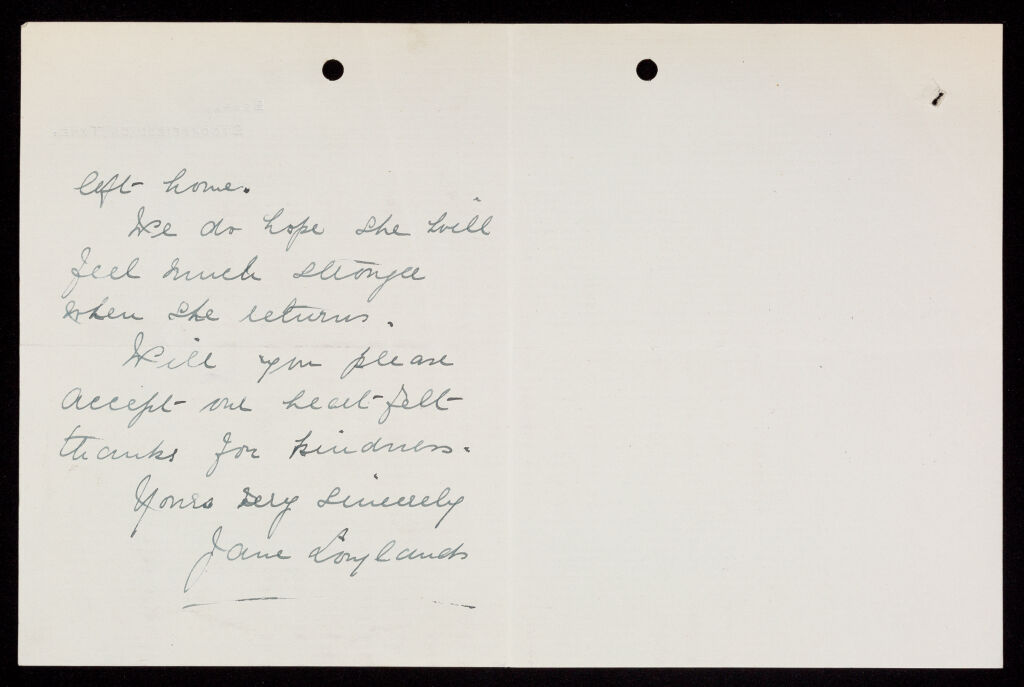 left home.
We do hope she will
feel much stronger
when she returns.
Will you please
accept our heart-felt
thanks for kindness.
Yours very sincerely
Jane